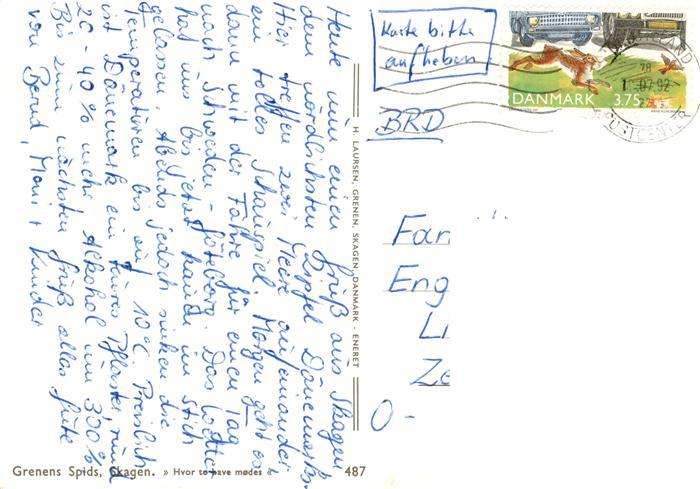 Heute nun einen Gruß aus Skagen
dem nördlichsten Zipfel Dänemarks.
Hier treffen zwei Meere aufeinander
ein tolles Schauspiel. Morgen geht es
dann mit der Fähre für einen Tag
nach Schweden - Göteborg. Das Wetter
hat uns bis jetzt kaum im Stich
gelassen. Abends jedoch sinken die
Temperaturen bis auf 10°C. Preislich
ist Dänemark ein teures Pflaster, rund
20-40% mehr Alkohol um 300%
Bis zum nächsten Gruß alles Gute
von Bernd, Moni + Kinder
H. LAURSEN, GRENEN, SKAGEN, DANMARK - ENERET
Karte bitte
aufheben
DANMARK 3.75
BRD
Fa
Eng
L
Ze
O-
Grenens Spids, Skagen. » Hvor to have mødes «
487